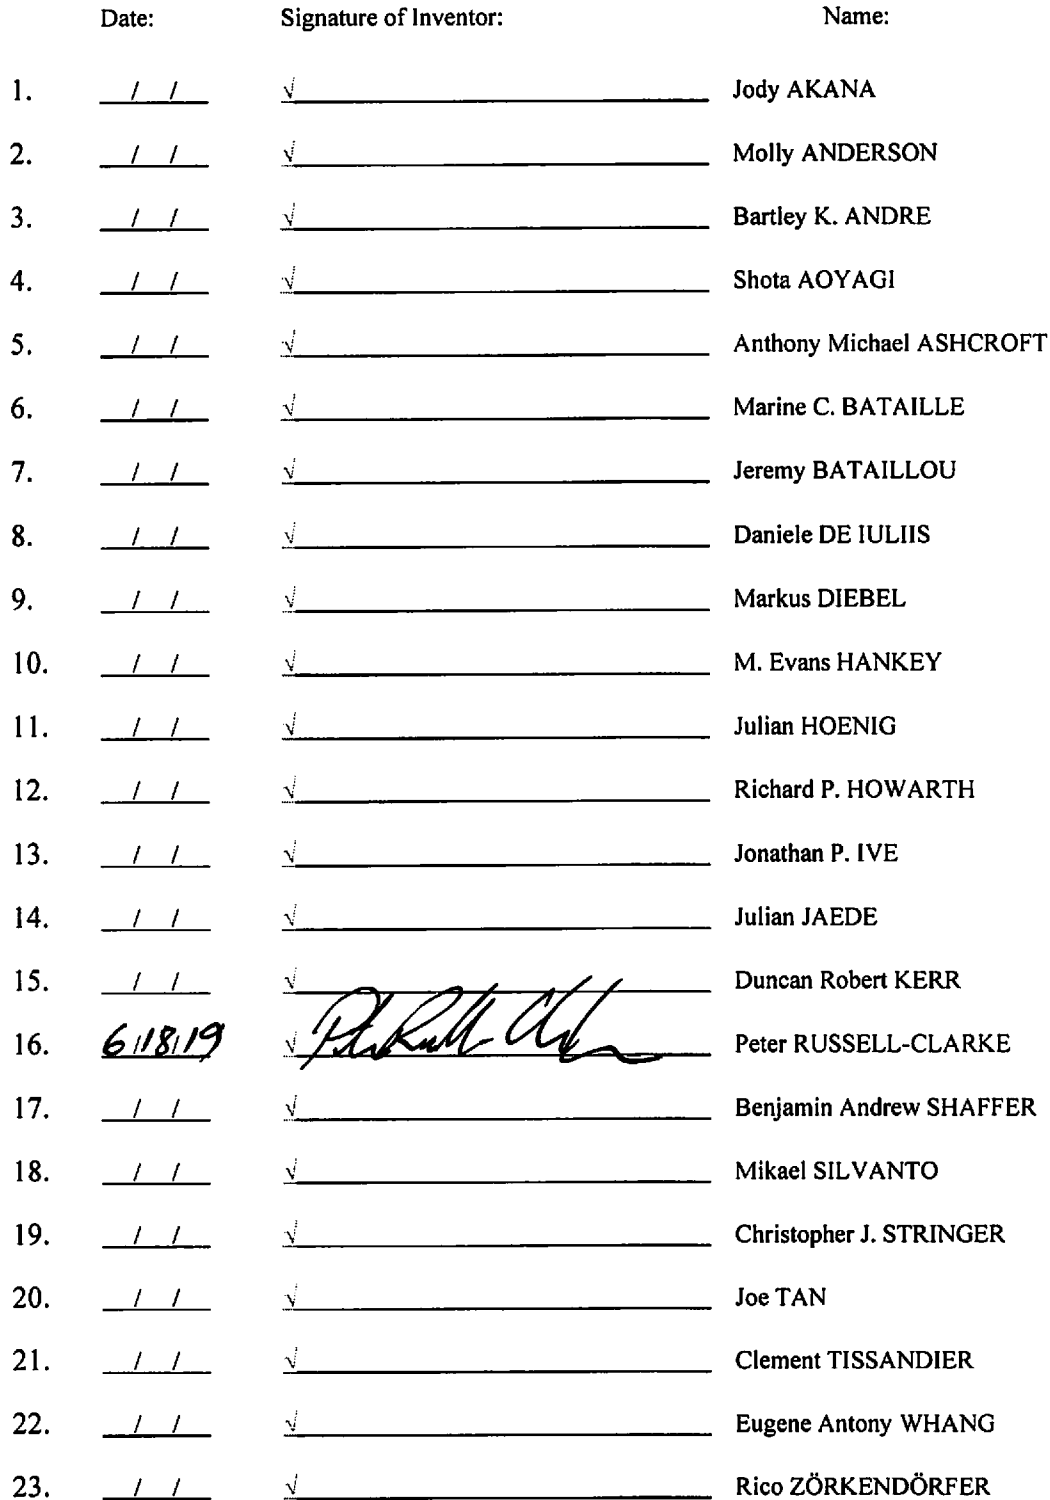 Date: Signature of Inventor: Name:
1. / / √ Jody AKANA
2. / / √ Molly ANDERSON
3. / / √ Bartley K. ANDRE
4. / / √ Shota AOYAGI
5. / / √ Anthony Michael ASHCROFT
6. / / √ Marine C. BATAILLE
7. / / √ Jeremy BATAILLOU
8. / / √ Daniele DE IULIIS
9. / / √ Markus DIEBEL
10. / / √ M. Evans HANKEY
11. / / √ Julian HOENIG
12. / / √ Richard P. HOWARTH
13. / / √ Jonathan P. IVE
14. / / √ Julian JAEDE
15. / / √ Duncan Robert KERR
16. 6/18/19 √ Peter RUSSELL-CLARKE
17. / / √ Benjamin Andrew SHAFFER
18. / / √ Mikael SILVANTO
19. / / √ Christopher J. STRINGER
20. / / √ Joe TAN
21. / / √ Clement TISSANDIER
22. / / √ Eugene Antony WHANG
23. / / √ Rico ZÖRKENDÖRFER